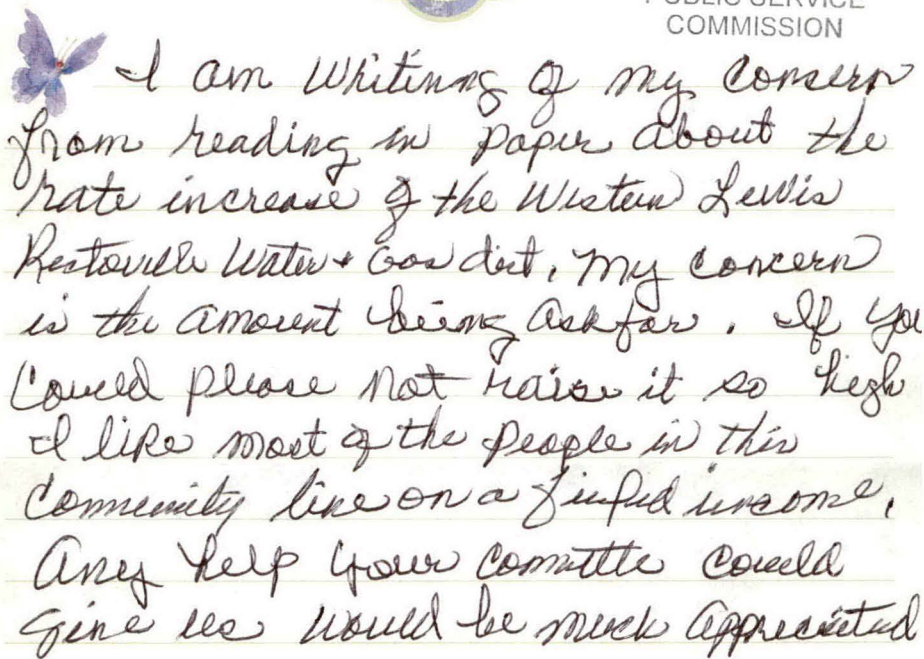 PUBLIC SERVICE
COMMISSION
I am Whitinng of my Consern
from reading in Paper About the
rate increase of the Western Lewis
Rectorville Water + Gas dist. My Concern
is the Amount being Ask for. If you
Could please Not raise it so high
I like most of the People in this
Community live on a fixed income.
Any help your Committe Could
give us would be much Appreciated